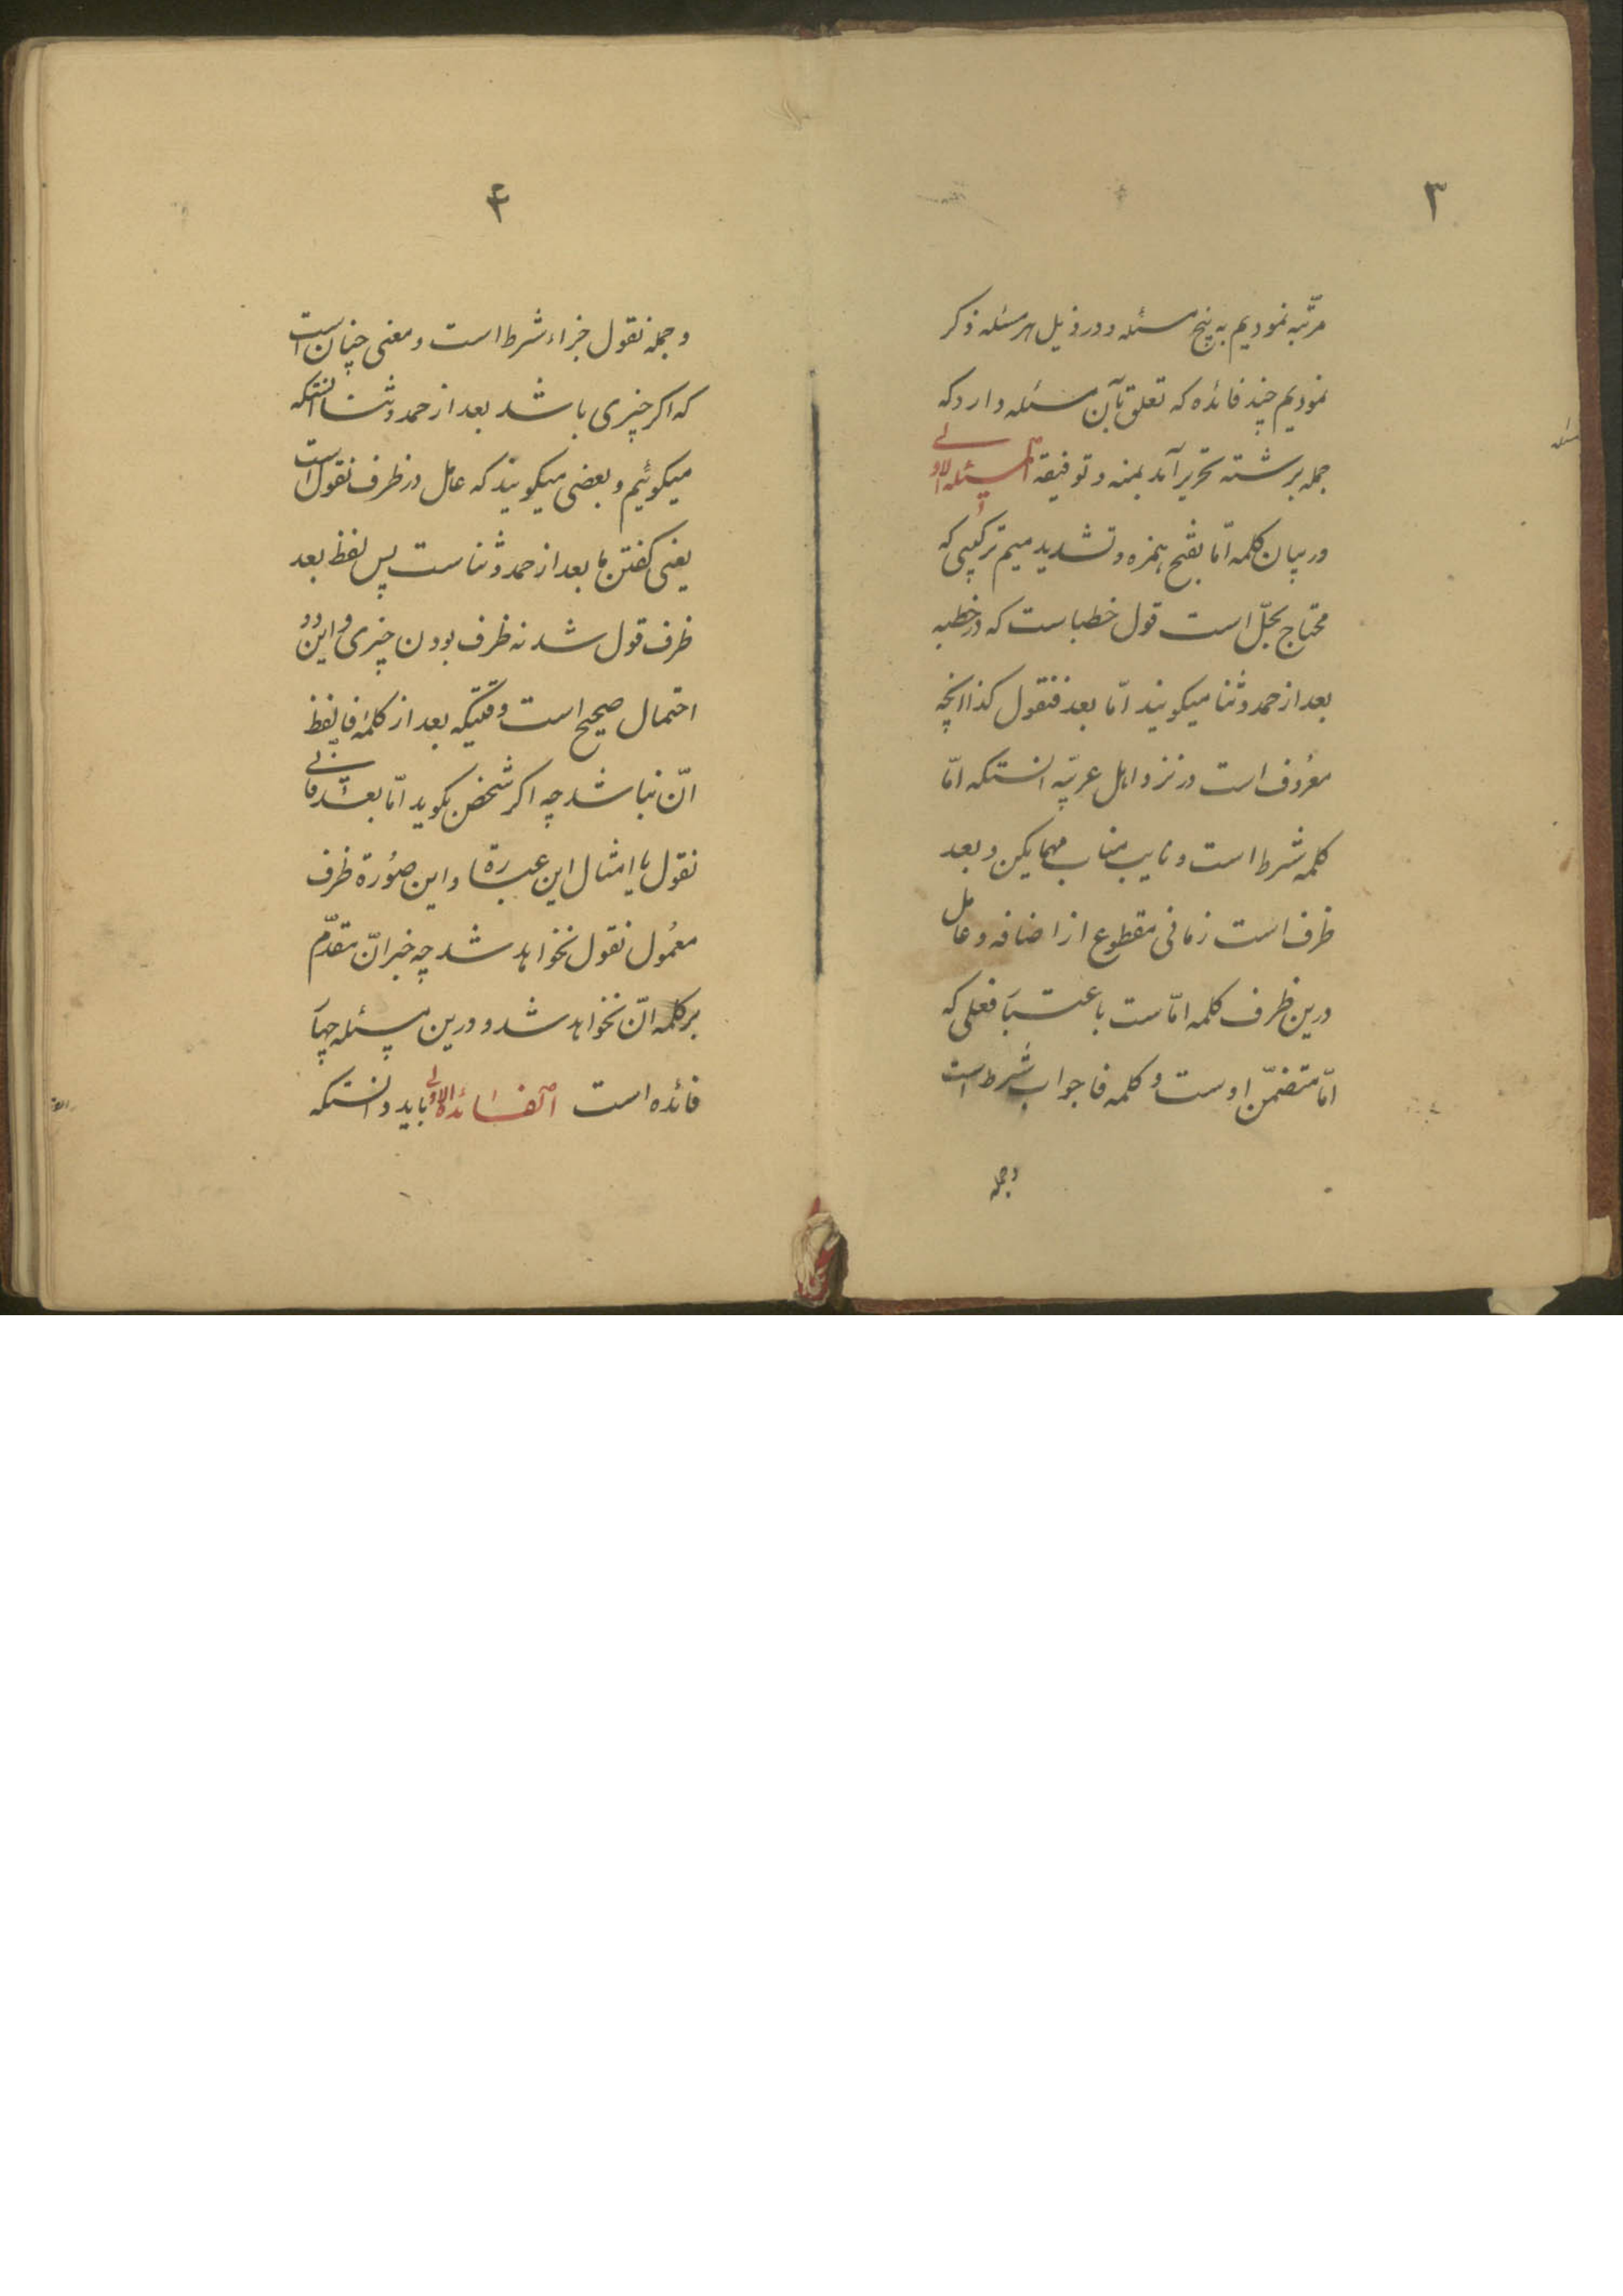 ۳
مرتّبه نمودیم به پنج مسئله و در ذیل هر مسئله ذکر
نمودیم چند فائده که تعلق بآن مسئله دارد که
جمله برشته تحریر آید بمنه و توفیقه المسئله الاولے
در بیان کلمه امّا بفتح همزه و تشدید میم ترکیبی که
محتاج بحلّ است قول خطباست که در خطبه
بعد از حمد و ثنا میکویند امّا بعد فنقول کذا انچه
معرُوف است در نزد اهل عربیّه انستکه امّا
کلمه شرط است و نایب مناب مهما یکن و بعد
ظرف است زمانی مقطوع از اضافه و عامل
درین ظرف کلمه امّاست باعتبار فعلی که
امّا متضمّن اوست و کلمه فا جواب شرط است
وجمله
۴
و جمله نقول جزاء شرط است و معنی چنان است
که اکر چیزی باشد بعد از حمد و ثنا انستکه
میکوئیم و بعضی میکویند که عامل در ظرف نقول است
یعنی کفتن ما بعد از حمد و ثناست پس لفظ بعد
ظرف قول شد نه ظرف بودن چیزی و این دو
احتمال صحیح است وقتیکه بعد از کلمهٔ فا لفظ
انّ نباشد چه اکر شخص بکوید امّا بعد فانّے
نقول یا امثال این عبارة را در این صُورة ظرف
معمُول نقول نخواهد شد چه خبر انّ مقدّم
بر کلمه انّ نخواهد شد و درین مسئله چهار
فائده است الفائدة الاولے باید دانستکه